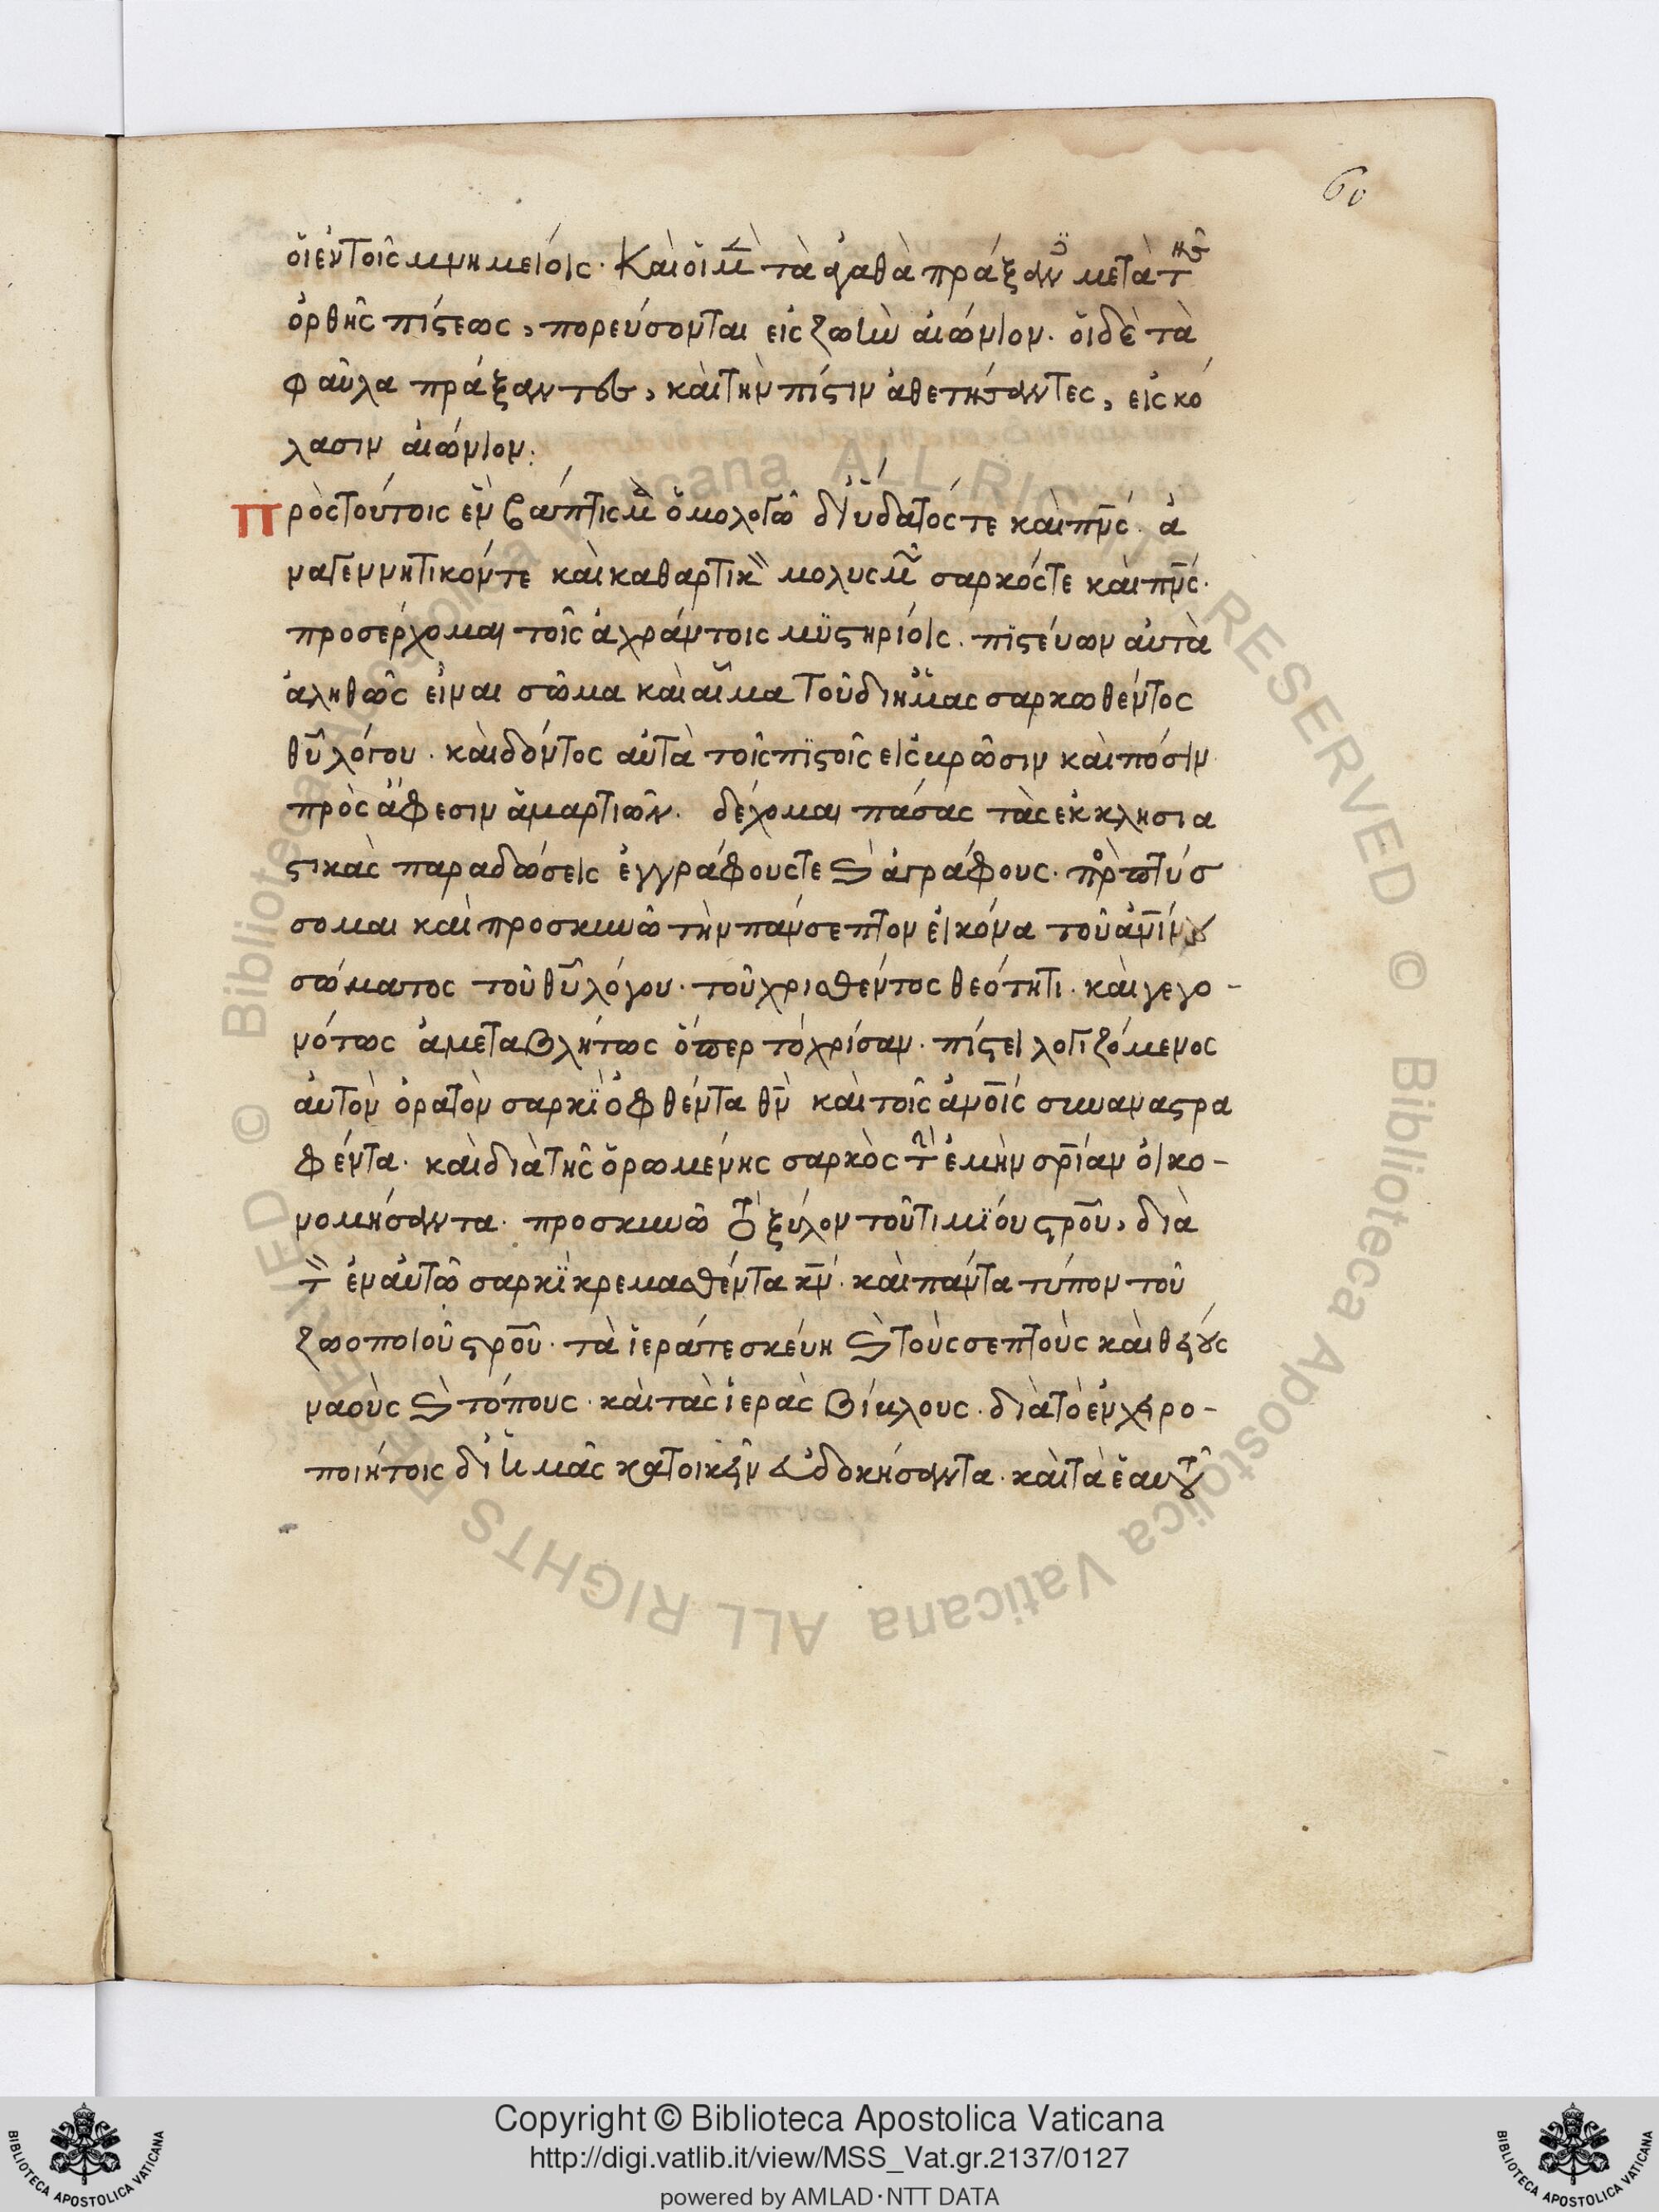 60
οἱ ἐν τοῖς μνημείοις· Καὶ οἱ μ̅ὲ̀ν τὰ ἀγαθὰ πράξαντες μετὰ τῆς
ὀρθῆς πίστεως, πορεύσονται εἰς ζωὴν αἰώνιον· οἱ δὲ τὰ
φαῦλα πράξαντες, καὶ τὴν πίστιν ἀθετήσαντες, εἰς κό
λασιν αἰώνιον:
Πρὸς τούτοις ἓν βάπτισμα ὁμολογῶ δι' ὕδατός τε καὶ πν̅ς· ἀ
ναγεννητικόν τε καὶ καθαρτικὸν μολυσμοῦ σαρκός τε καὶ πν̅ς·
προσέρχομαι τοῖς ἀχράντοις μϋστηρίοις· πϊστεύων αὐτὰ
ἀληθῶς εἶναι σῶμα καὶ αἷμα τοῦ δι ἡμᾶς σαρκωθέντος
θυ̅ λόγου· καὶ δόντος αὐτὰ τοῖς πϊστοῖς εἰς βρῶσιν καὶ πόσιν
πρὸς ἄφεσιν ἁμαρτιῶν· δέχομαι πάσας τὰς ἐκκλησια
στικὰς παραδώσεις ἐγγράφους τε καὶ ἀγράφους· προσπτύσ
σομαι καὶ προσκυνῶ τὴν πάνσεπτον εἰκόνα τοῦ ἀν̅ίνου
σώματος τοῦ θυ̅ λόγου· τοῦ χρισθέντος θεότητι· καὶ γεγο-
νότως ἀμεταβλήτως ὅπερ τὸ χρίσαν· πίστει λογιζόμενος
αὐτὸν ὁρατὸν σαρκῒ ὀφθέντα θν̅ καὶ τοῖς ἀν̅οις συναναστρα
φέντα· καὶ διὰ τῆς ὁρωμένης σαρκὸς τὴν ἐμὴν σρ̅ίαν οἰκο-
νομήσαντα· προσκυνῶ τὸ ξύλον τοῦ τιμΐου στρ̅οῦ, διὰ
τὸν ἐν αὐτῶ σαρκῒ κρεμασθέντα κν̅· καὶ πάντα τύπον τοῦ
ζωοποιοῦ στρ̅οῦ· τὰ ἱερά τε σκεύη καὶ τοὺς σεπτοὺς καὶ θείους
ναοὺς καὶ τόπους· καὶ τὰς ἱερὰς βίβλους· διὰ τὸ ἐν χειρο-
ποιήτοις δι ἡμᾶς κατοικεῖν εὐδοκήσαντα· καὶ τὰ ἑαυτοῦ
© Biblioteca Apostolica Vaticana ALL RIGHTS RESERVED © Biblioteca Apostolica Vaticana ALL RIGHTS RESERVED
Copyright © Biblioteca Apostolica Vaticana
http://digi.vatlib.it/view/MSS_Vat.gr.2137/0127
powered by AMLAD·NTT DATA
BIBLIOTECA APOSTOLICA VATICANA
BIBLIOTECA APOSTOLICA VATICANA